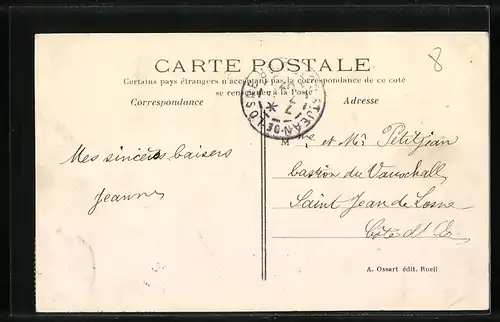 8
CARTE POSTALE
Certains pays étrangers n'acceptent pas la correspondance de ce coté
se renseigner à la Poste
Correspondance
Adresse
ST JEAN-DE-LOSNE
M et Mr Petitjean
Mes sincères baisers
bastion du Vauxhall
Jeanne
Saint Jean de Losne
Côte d'Or
A. Ossart édit. Rueil